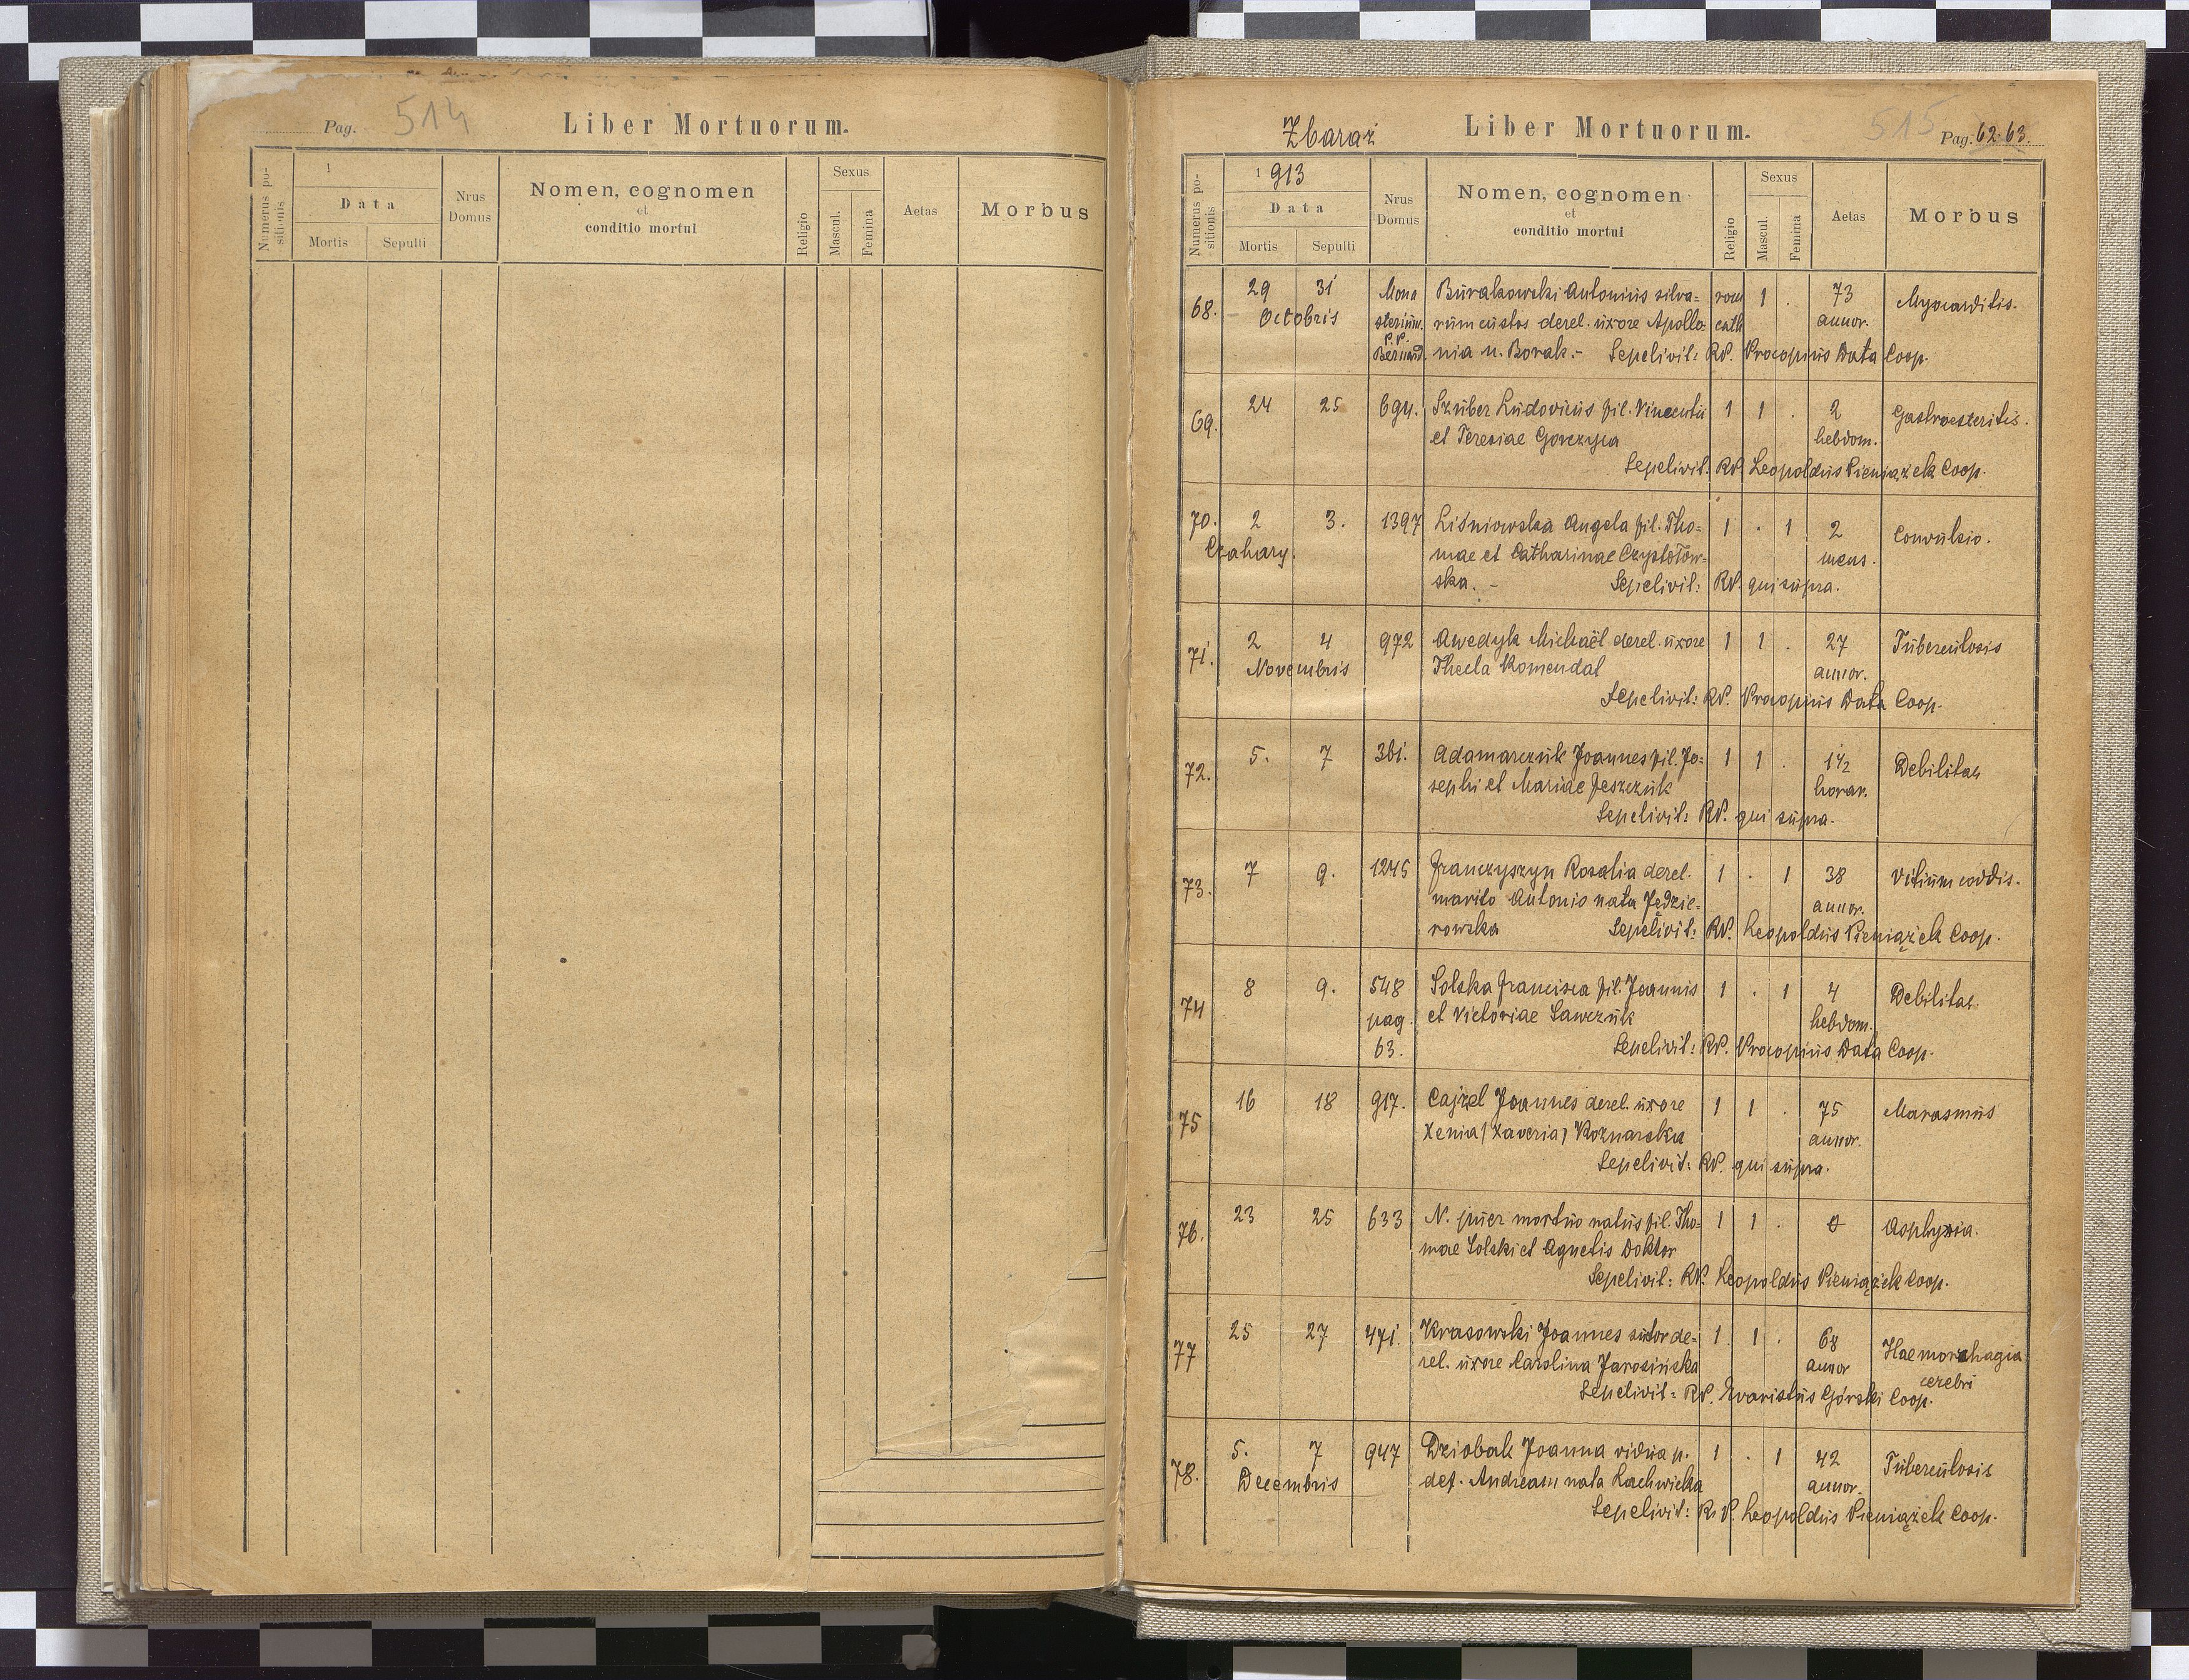 Pag. 514 Liber Mortuorum.
Numerus positionis
1
Data
Mortis Sepulti
Nrus Domus
Nomen, cognomen
et
conditio mortui
Religio
Sexus
Mascul. Femina
Aetas
Morbus
Zbaraż Liber Mortuorum. 515 Pag. 62.63.
Numerus positionis
1913
Data
Mortis Sepulti
Nrus Domus
Nomen, cognomen
et
conditio mortui
Religio
Sexus
Mascul. Femina
Aetas
Morbus
68. 29 31 Mona Burakowski Antonius silva= rom 1 . 73 Myocarditis.
Octobris sterium. rum custos derel. uxore Apollo= cath annor.
P.P. Bernard nia n. Borak.- Sepelivit: RP. Procopius Data Coop.
69. 24 25 694. Szuber Ludovicus fil. Vincentii 1 1 . 2 Gastroesteritis.
et Teresiae Gorczyca hebdom.
Sepelivit: RP. Leopoldus Pieniążek Coop.
70. 2 3. 1397 Liśniowska Angela fil. Tho= 1 . 1 2 Convulsio.
Czahary. mae et Catharinae Czystołow= mens.
ska. - Sepelivit: RP. qui supra.
71. 2 4 972 Awedyk Michaël derel. uxore 1 1 . 27 Tuberculosis
Novembris Thecla Komendat annor.
Sepelivit: RP. Procopius Data Coop.
72. 5. 7 361. Adamarczuk Joannes fil. Jo= 1 1 . 1½ Debilitas
sephi et Mariae Jeszczuk horar.
Sepelivit: RP. qui supra.
73. 7 9. 1245 Franczyszyn Rosalia derel. 1 . 1 38 Vitium cordis.
marito Antonio nata Jędzie= annor.
rowska Sepelivit: RP. Leopoldus Pieniążek Coop.
74 8 9. 548 Solska Francisca fil. Joannis 1 . 1 4 Debilitas
pag. et Victoriae Sawczuk hebdom.
63. Sepelivit: RP. Procopius Data Coop.
75 16 18 917. Cajzel Joannes derel. uxore 1 1 . 75 Marasmus
Xenia/Xaveria/ Koznarska annor.
Sepelivit: RP. qui supra.
76. 23 25 633 N. puer mortuo natus fil. Tho= 1 1 . 0 Asphyxia.
mae Solski et Agnetis Doktor
Sepelivit: RP. Leopoldus Pieniążek Coop.
77 25 27 471. Krasowski Joannes sutor de= 1 1 . 68 Haemorrhagia
rel. uxore Carolina Jarosińska annor cerebri
Sepelivit: RP. Evaristus Górski Coop.
78. 5. 7 947 Dziobak Joanna vidua p. 1 . 1 42 Tuberculosis
Decembris def. Andream nata Lachwicka annor.
Sepelivit: R.P. Leopoldus Pieniążek Coop.